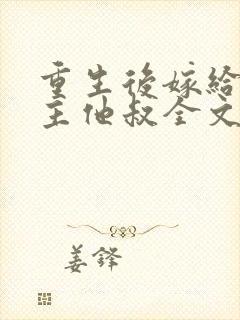 重生後嫁給
主他叔全文
姜鋒